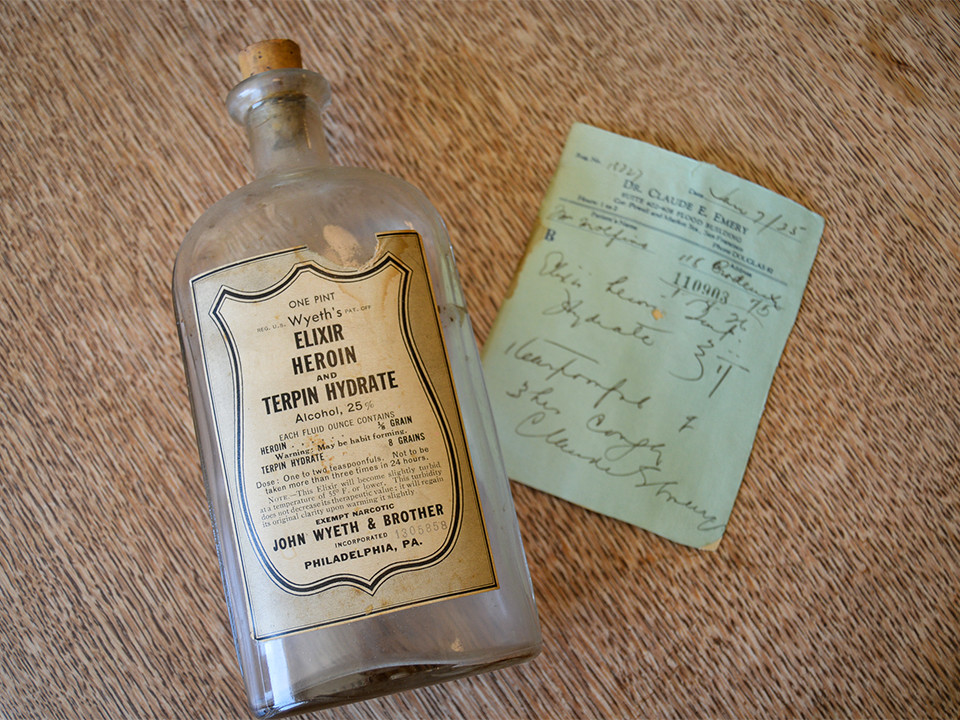 ONE PINT
REG. U.S. Wyeth's PAT. OFF
ELIXIR
HEROIN
AND
TERPIN HYDRATE
Alcohol, 25%
EACH FLUID OUNCE CONTAINS
HEROIN . . . . . . ⅛ GRAIN
Warning: May be habit forming.
TERPIN HYDRATE . . . 8 GRAINS
Dose: One to two teaspoonfuls. Not to be
taken more than three times in 24 hours.
NOTE.—This Elixir will become slightly turbid
at a temperature of 55° F. or lower. This turbidity
does not decrease its therapeutic value; it will regain
its original clarity upon warming it slightly.
EXEMPT NARCOTIC
JOHN WYETH & BROTHER
INCORPORATED 1305858
PHILADELPHIA, PA.
Reg. No. Date Jan 7/25
DR. CLAUDE E. EMERY
SUITE FLOOD BUILDING
Cor. Powell and Market Sts., San Francisco
Hours: Phone DOUGLAS
Patient's Name
Address
110903
℞
Hydrate
Teaspoonful
3 hrs Cough
Claude Emery